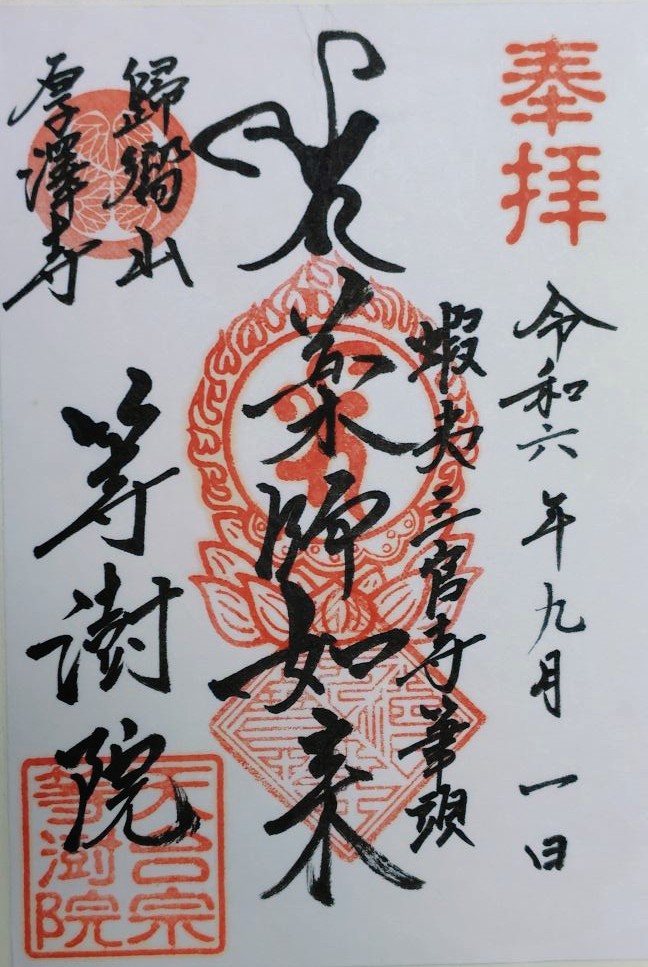 奉拝
令和六年九月一日
蝦夷三官寺筆頭
薬師如来
歸嚮山
厚澤寺
等澍院
天台宗
等澍院